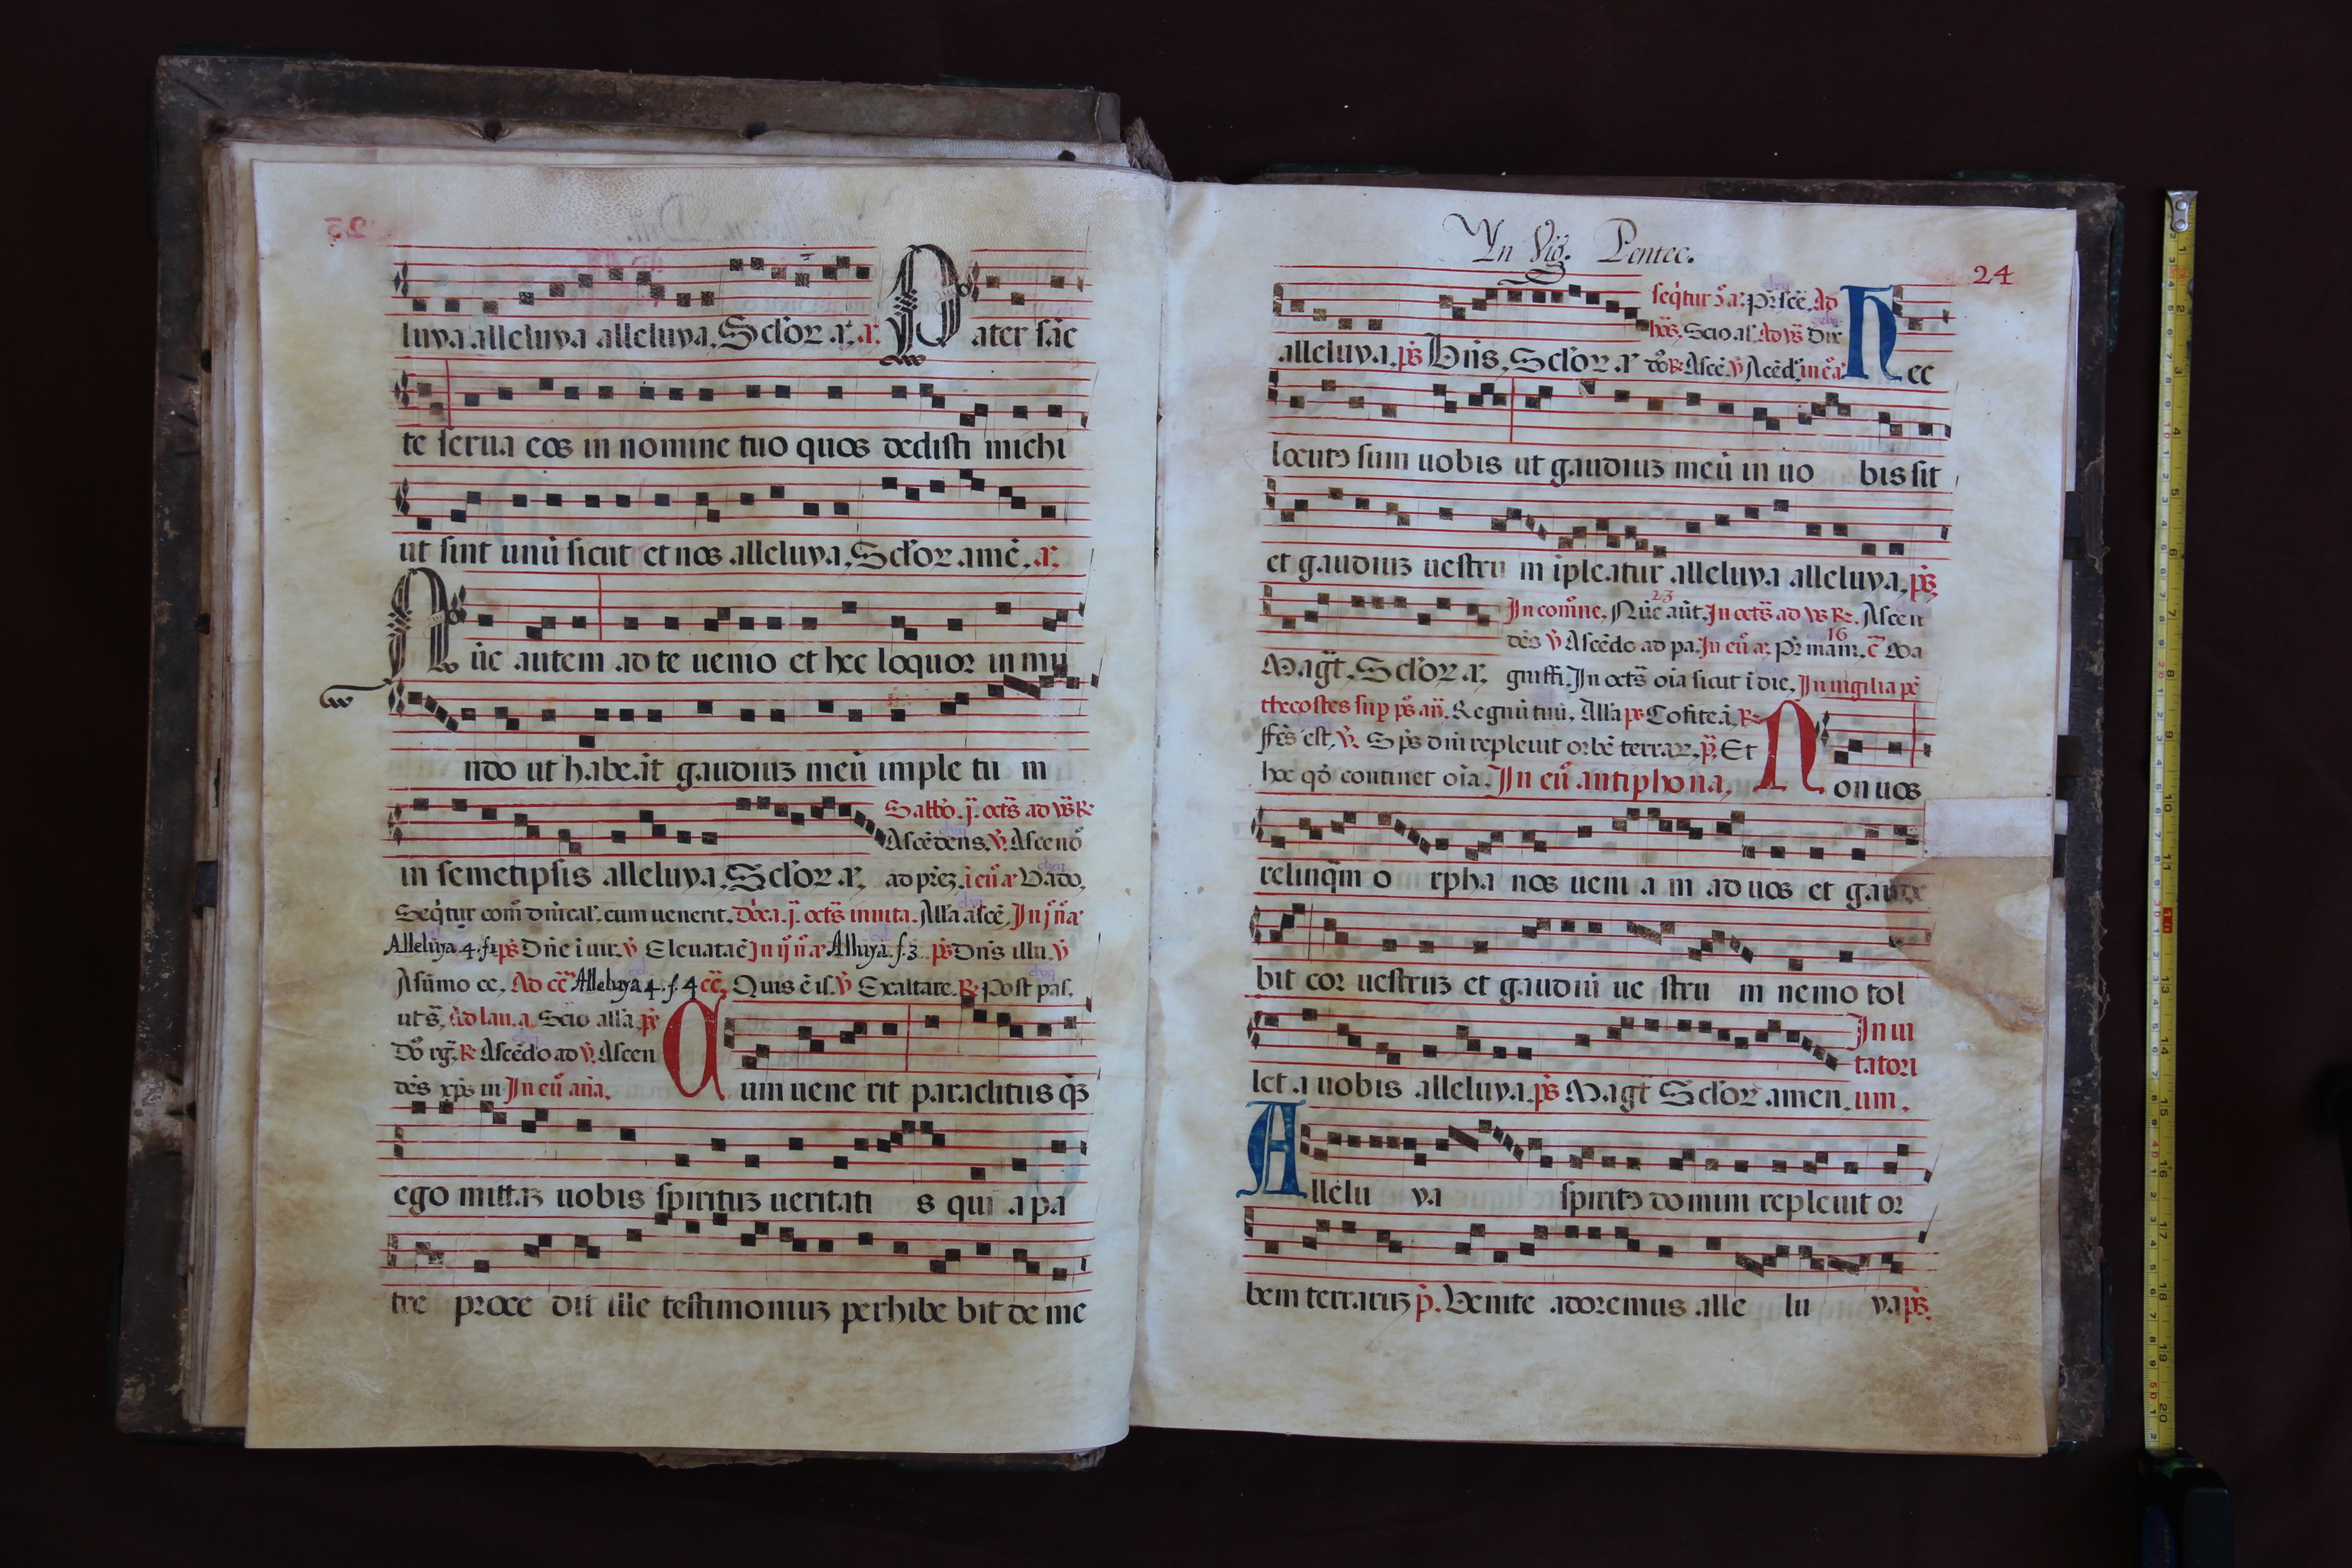 luya alleluya alleluya. Sclo᷒ꝝ. a. a. Pater sãc
te serua eos in nomine tuo quos dedisti michi
ut sint unũ sicut et nos alleluya. Scloꝝ amẽ. a.
Nũc autem ad te uenio et hec loquor in mu
ndo ut habeãt gaudiuꝫ meũ imple tu m
Sabbo. j. octs̃ ad vs̃ ℞
Ascẽdens. ṽ. Ascend᷒
in semetipsis alleluya. Scloꝝ a. ad pr̃ez. i eũ a Vado.
Seq̃tur com̃ dñical̃. cum uenerit. Dõca. j. octs̃ inuita. Alla ascẽ. In j n̊ a
Alleluya. 4. f. 4 ps̃ Dñe i uir. ṽ Eleuata ẽ In ij n̊ a Alluya. f. 3. ps̃ Dñs illu. ṽ
Asũmo ce. Ad cc̃ Alleluya 4. f. 4 cc̃. Quis ẽ is. ṽ Exaltare. ℞ Post pas.
uts̃. Ad lau. a. Scio alla. ps̃
Do᷒ rg̃. ℞ Ascẽdo ad ṽ. Ascen
dẽs xp̃s in In eũ aña.
Cum uene rit paraclitus q̃ꝫ
ego mittaꝫ uobis spirituꝫ ueritati s qui a pa
tre proce dit ille testimoniuꝫ perhibe bit de me
In Vig. Pentec.
24
seq̃tur
alleluya. ps̃ Dñs. Scloꝝ. a Hec
locutꝯ sum uobis ut gaudiuꝫ meũ in uo bis sit
et gaudiuꝫ uestru m ipleatur alleluya alleluya. ps̃
23
In com̃ne. Nũc aũt. In octs̃ ad vs ℞. Ascen
16
dẽs ṽ Ascẽdo ad pa. In eũ a. Pr̃ mam. c̃ Ma
Magt̃. Scloꝝ a. gniffi. In octs̃ oĩa sicut ĩ die. In uigilia pẽ
thecostes sup ps̃ añ. Regnũ tuũ. Alla ps̃ Cõfiteã. ℞
ṽ. Sp̃s dñi repleuit orbẽ terraꝝ. p̃. Et
hoc q̃d continet oĩa. In eũ antiphona. Non uos
relinq̃m o rpha nos ueni a m ad uos et gaude
bit cor uestruꝫ et gaudiũ ue stru m nemo tol
In ui
tatori
let a uobis alleluya. ps̃ Magt̃ Scloꝝ amen. um.
Allelu ya spiritꝯ domini repleuit or
bem terraruꝫ p̃. Venite adoremus alle lu ya ps̃.